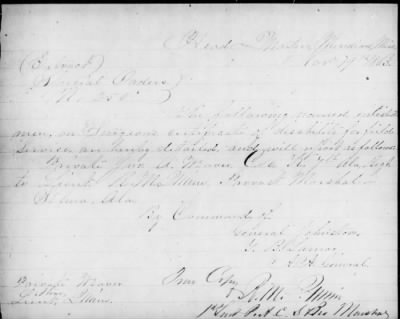 Head Quarters Meridian, Miss
Nov 19 1863
(Extract)
Special Orders
No. 250
The following named enlisted
men, on Surgeons certificate of disability for field
service, are hereby detailed, and will report as follows
Private Jno. A. Weaver Co. 7th Ala Regt
to Lieut. R. M. Provost Marshal
Selma, Ala.
By Command of
General Johnston
A. A. General
Private Weaver
Thro
Lieut.
True Copy
R. M.
1st Lieut P. A. C. S Pro Marshal